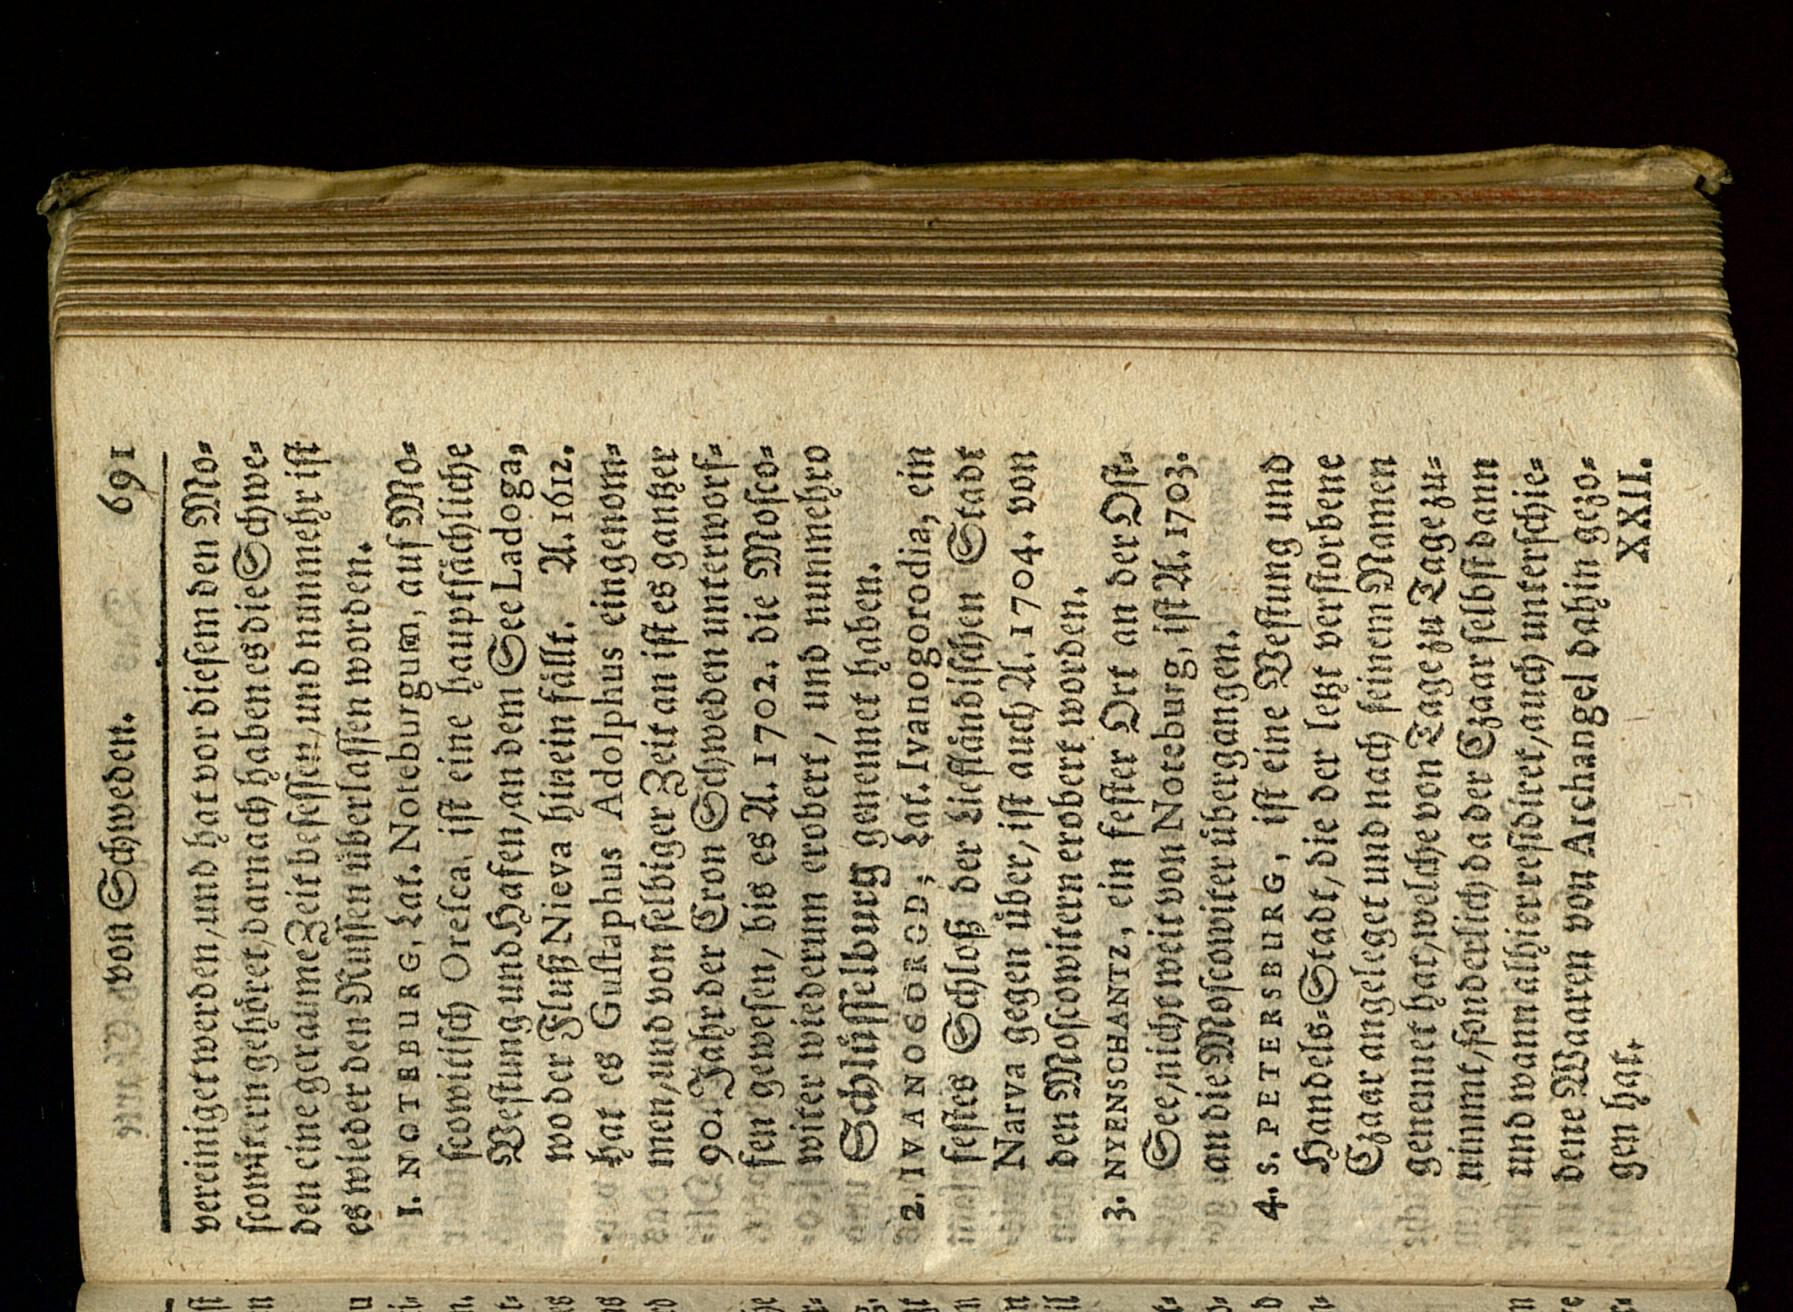 von Schweden. 691
vereiniget werden, und hat vor diesem den Mo-
scowitern gehöret, darnach haben es die Schwe-
den eine geraume Zeit besessen, und nunmehr ist
es wieder den Russen überlassen worden.
1. NOTEBURG, Lat. Noteburgum, auf Mo-
scowitisch Oresca, ist eine hauptsächliche
Vestung und Hafen, an dem See Ladoga,
wo der Fluß Nieva hinein fällt. A. 1612.
hat es Gustaphus Adolphus eingenom-
men, und von selbiger Zeit an ist es gantzer
90. Jahr der Cron Schweden unterworf-
fen gewesen, bis es A. 1702. die Mosco-
witer wiederum erobert, und nunmehro
Schlüsselburg genennet haben.
2. IVANOGORGD, Lat. Ivanogorodia, ein
festes Schloß der Liefländischen Stadt
Narva gegen über, ist auch A. 1704. von
den Moscowitern erobert worden.
3. NYENSCHANTZ, ein fester Ort an der Ost-
See, nicht weit von Noteburg, ist A. 1703.
an die Moscowiter übergangen.
4. S. PETERSBURG, ist eine Vestung und
Handels-Stadt, die der letzt verstorbene
Czaar angeleget und nach seinem Namen
genennet hat, welche von Tage zu Tage zu-
nimmt, sonderlich da der Czaar selbst dann
und wann alhier residiret, auch unterschie-
dene Waaren von Archangel dahin gezo-
gen hat.
XXII.